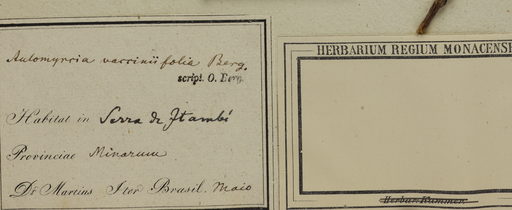 Automyrcia vaccinii folia Berg.
script. O. Berg.
Habitat in Serra de Itambé
Provinciae Minarum
Dr Martius Iter Brasil. Maio
HERBARIUM REGIUM MONACENSE